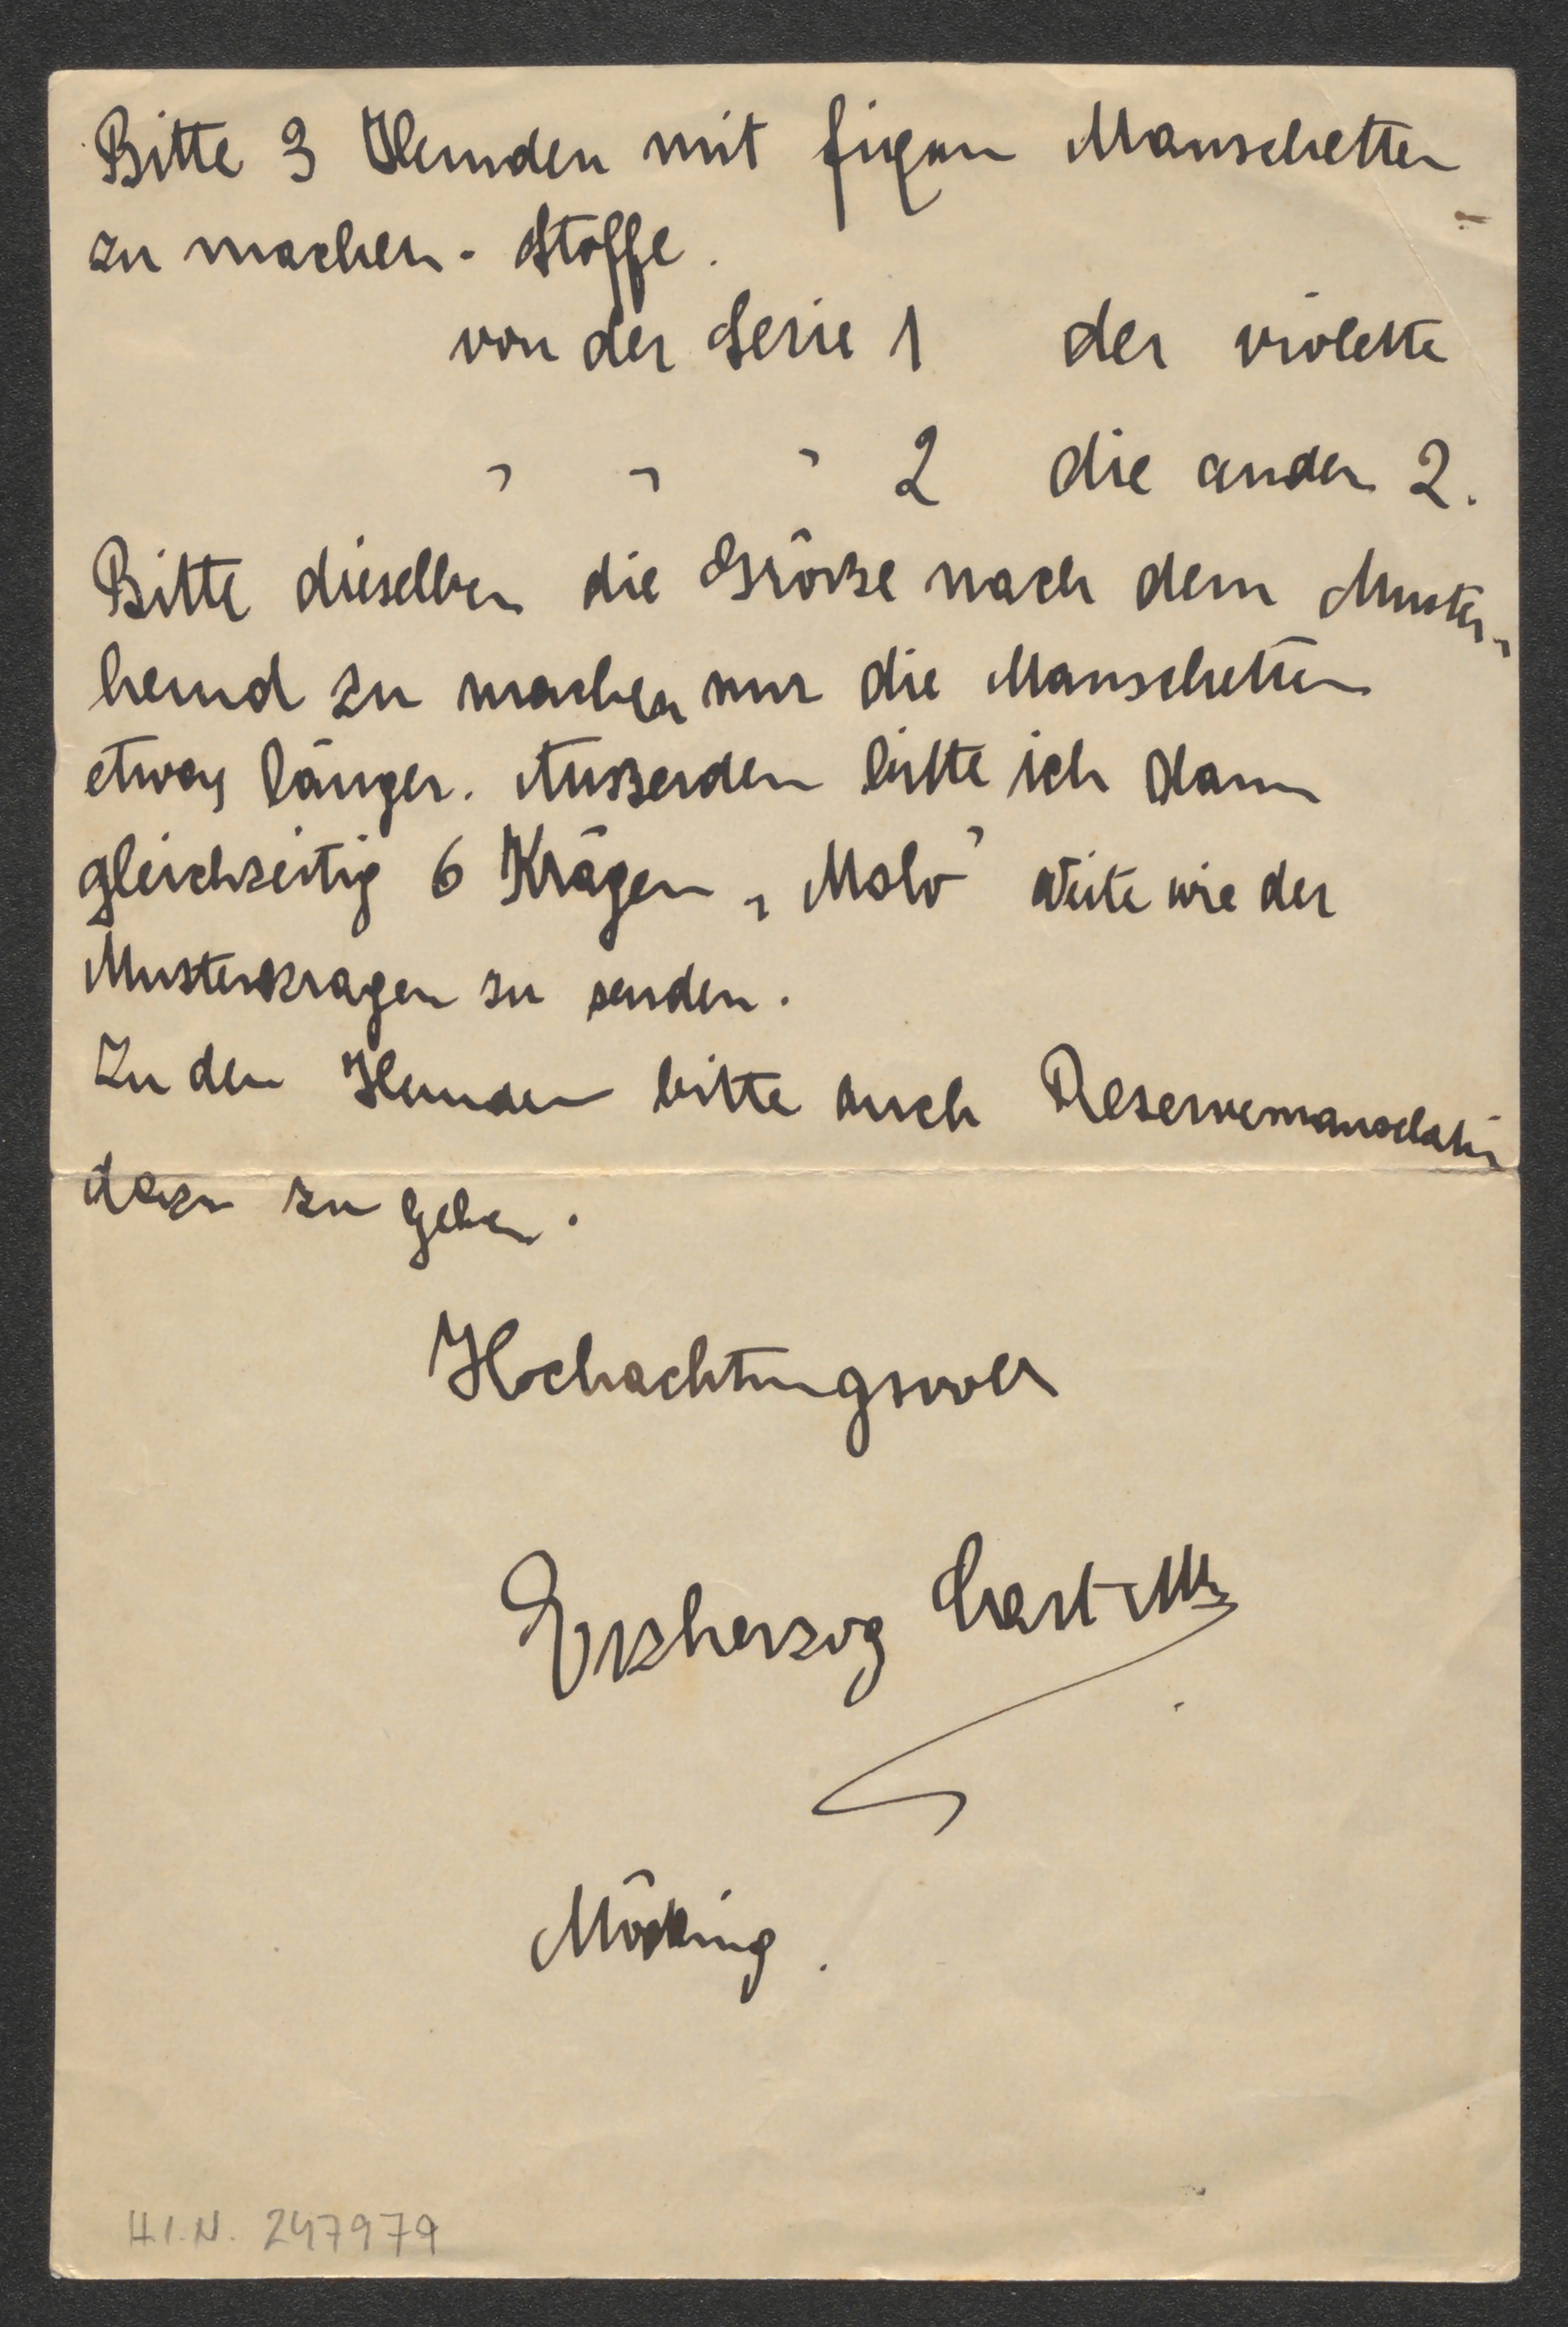 Bitte 3 Hemden mit fixen Manschetten
zu machen. Stoffe.
von der Serie 1 der violette
" " " 2 die andern 2.
Bitte dieselben die Größe nach dem Muster-
hemd zu machen nur die Manschetten
etwas länger. Außerdem bitte ich dann
gleichzeitig 6 Krägen „Molo" Weite wie der
Musterkragen zu senden.
Zu den Hemden bitte auch Reservemanschetten
dazu zu geben.
Hochachtungsvoll
Erzherzog
H.I.N. 247979